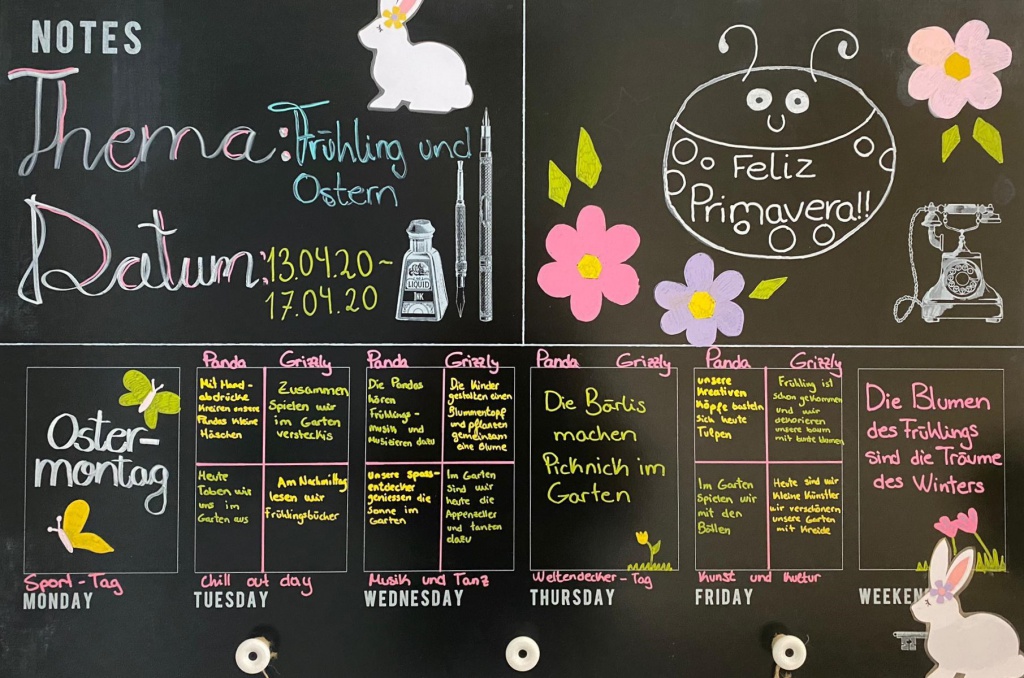 NOTES
Thema: Frühling und
Ostern
Datum: 13.04.20 -
17.04.20
LIQUID
INK
Feliz
Primavera!!
Oster-
montag
Sport - Tag
MONDAY
Panda Grizzly
Mit Hand-
abdrücke
Kreiren unsere
Pandas kleine
Häschen
Zusammen
Spielen wir
im Garten
versteckis
Heute
Toben wir
uns im
Garten aus
Am Nachmittag
lesen wir
Frühlingsbücher
Chill out day
TUESDAY
Panda Grizzly
Die Pandas
hören
Frühlings-
musik und
Musizieren dazu
Die Kinder
gestalten einen
Blummentopf
und pflanzen
gemeinsam
eine Blume
unsere spass-
entdecker
geniessen die
Sonne im
Garten
Im Garten
sind wir
heute die
Appenzeller
und tanzen
dazu
Musik und Tanz
WEDNESDAY
Panda Grizzly
Die Bärlis
machen
Picknick im
Garten
Weltendecker - Tag
THURSDAY
Panda Grizzly
unsere
Kreativen
Köpfe basteln
sich heute
Tulpen
Frühling ist
schon gekommen
und wir
dekorieren
unsere baum
mit bunte blumen
Im Garten
Spielen wir
mit den
Bällen
Heute sind wir
kleine Künstler
wir verschönern
unsere Garten
mit Kreide
Kunst und Kultur
FRIDAY
Die Blumen
des Frühlings
sind die Träume
des Winters
WEEKEN